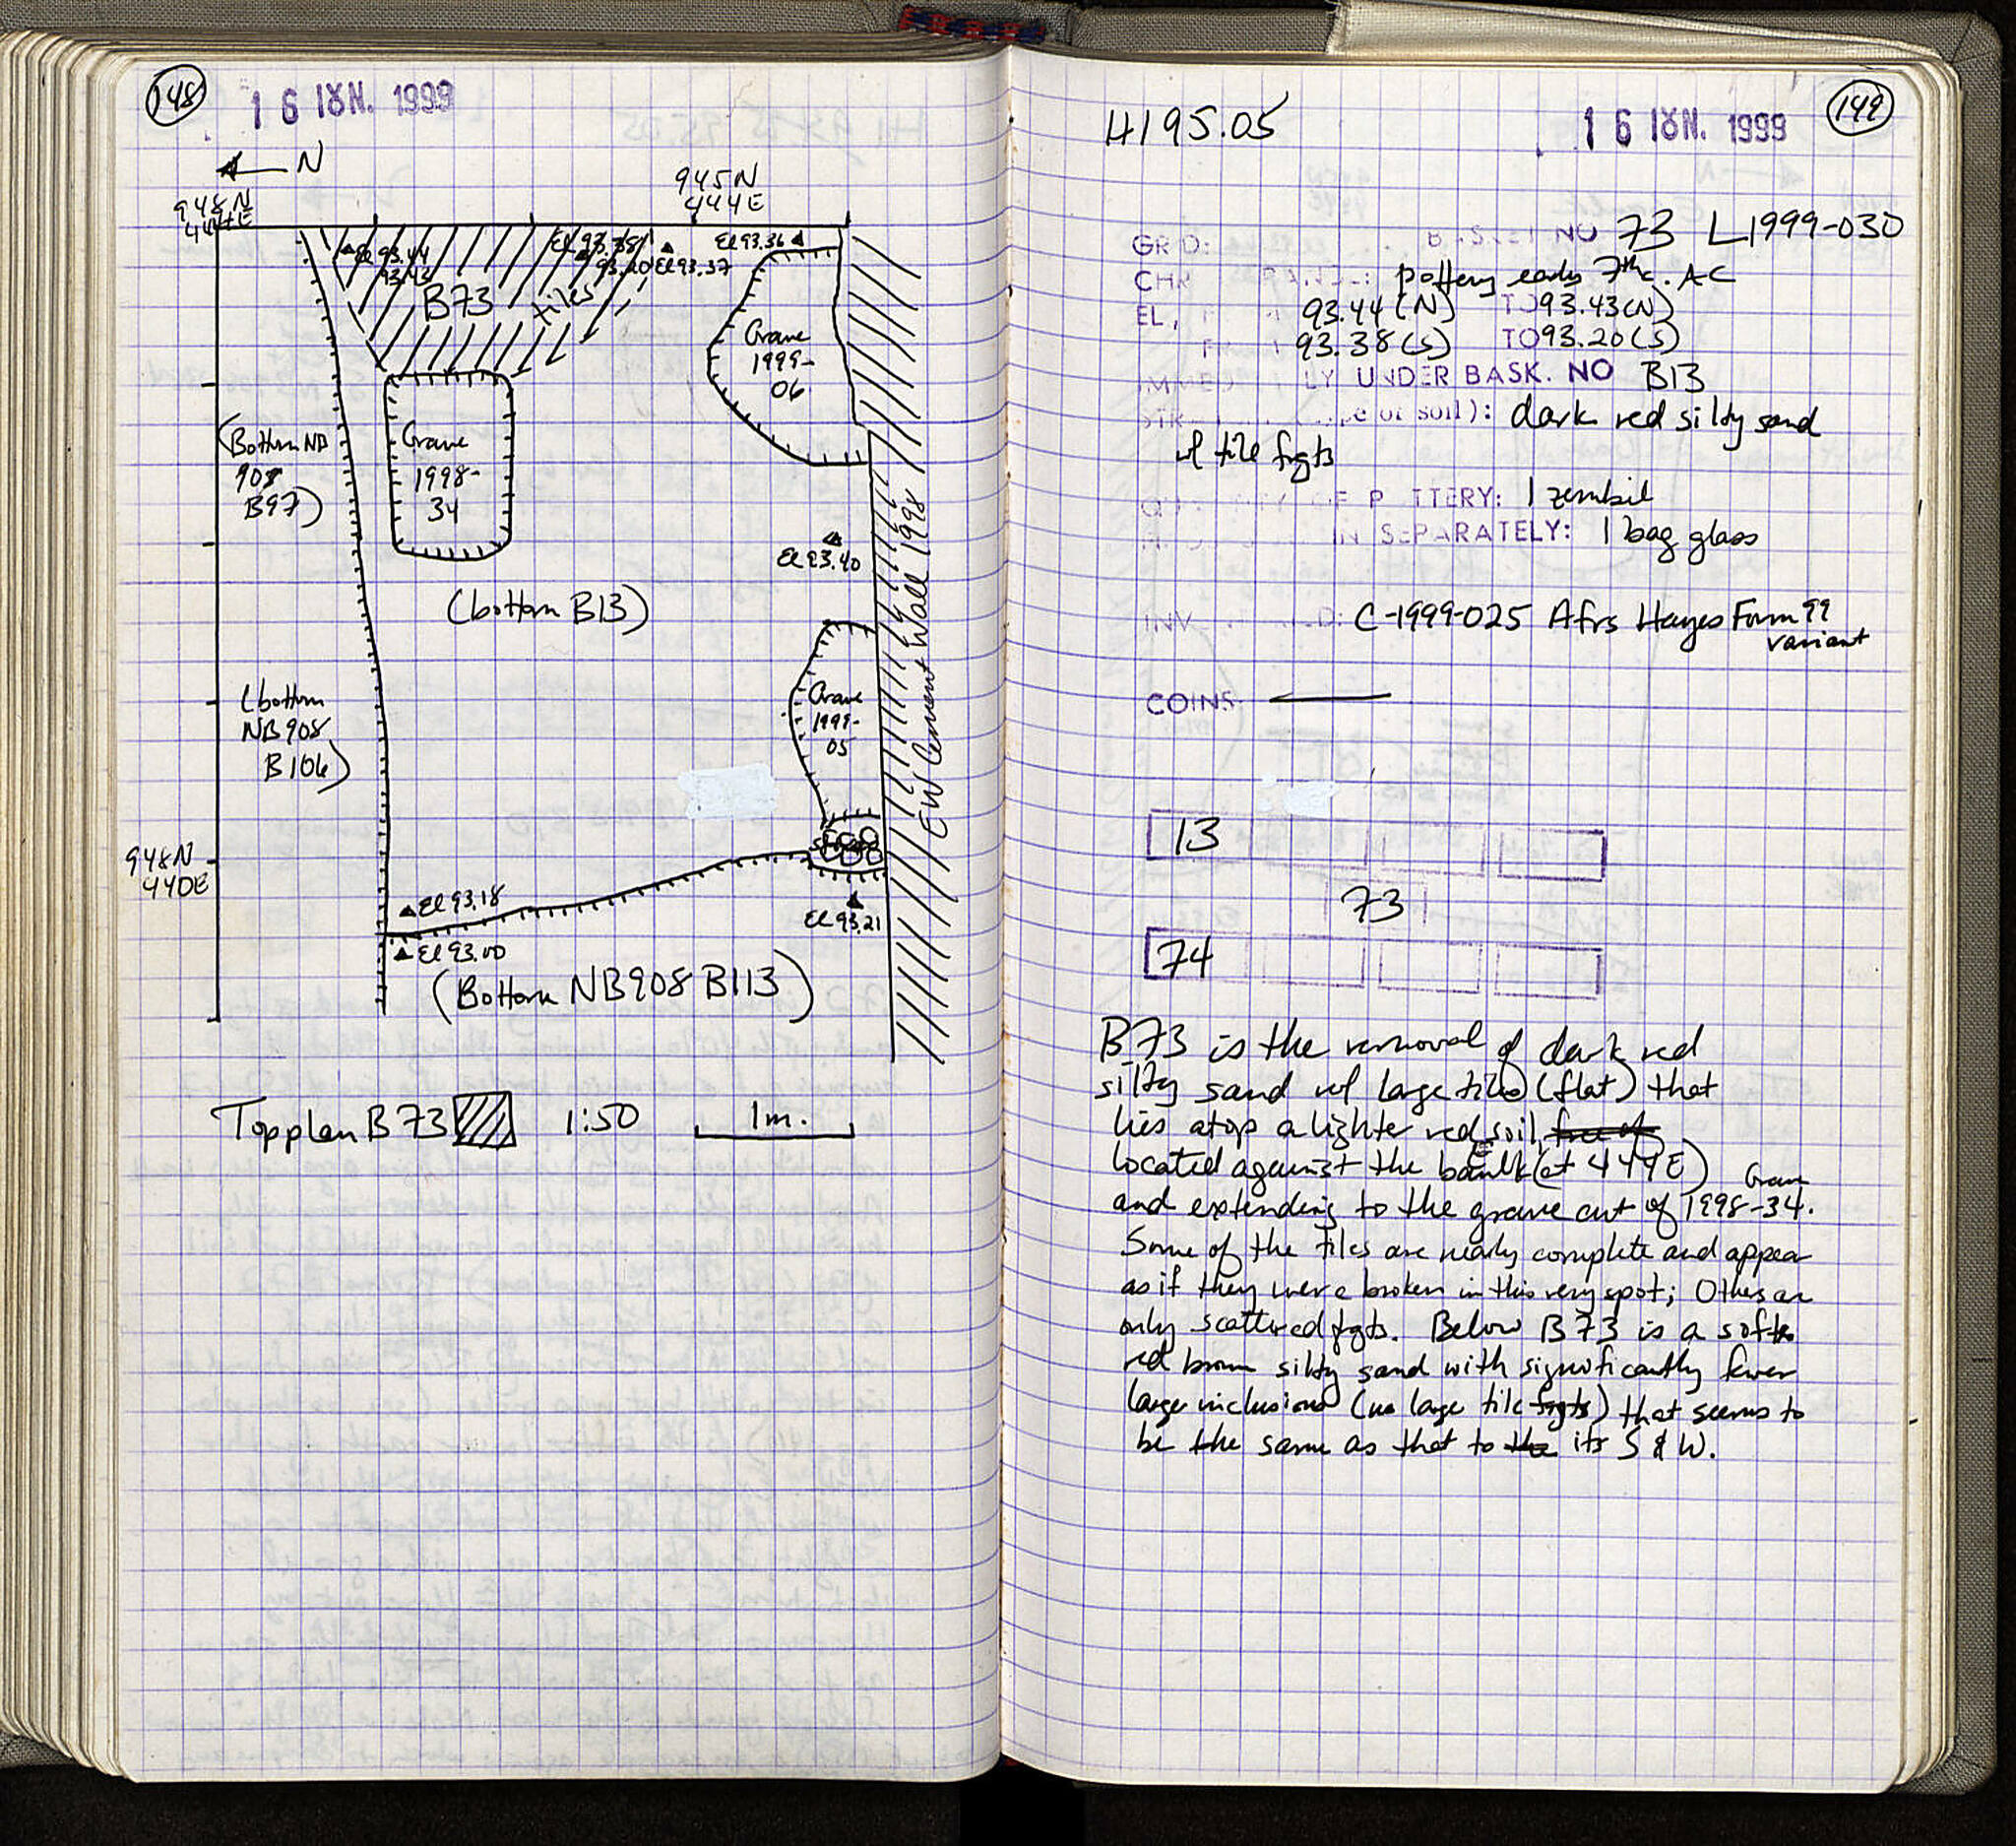 148
16 ΙΟΥΝ. 1999
N
948N
444E
945N
444E
El 93.44
93.43
El 93.38
93.20
El 93.37
El 93.36
B73
tiles
Grave
1999-
06
(Bottom NB
908
B97)
Grave
1998-
34
El 93.40
(bottom B13)
EW Cement Wall 1998
(bottom
NB908
B106)
Grave
1999-
05
948N
440E
El 93.18
El 93.21
El 93.00
(Bottom NB908 B113)
Topplan B73 1:50 1m.
149
H195.05
16 ΙΟΥΝ. 1999
GRID: BASKET NO 73 L1999-030
pottery early 7th c. AC
EL, 93.44(N) TO 93.43(N)
93.38(S) TO 93.20(S)
UNDER BASK. NO B13
soil): dark red silty sand
w/ tile frgts
POTTERY: 1 zembil
IN SEPARATELY: 1 bag glass
INV C-1999-025 Afrs Hayes Form 99
variant
COINS
13
73
74
B73 is the removal of dark red
silty sand w/ large tiles (flat) that
lies atop a lighter red soil, free of
located against the baulk (at 444E)
and extending to the grave cut of Grave 1998-34.
Some of the tiles are nearly complete and appear
as if they were broken in this very spot; Others are
only scattered frgts. Below B73 is a softer
red brown silty sand with significantly fewer
large inclusions (no large tile frgts) that seems to
be the same as that to the its S & W.